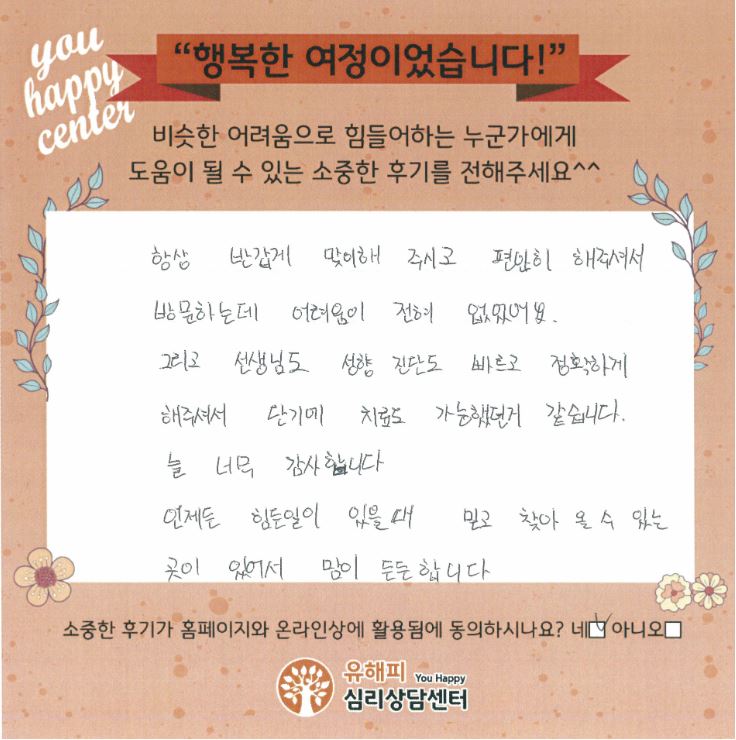 you
happy
center
“행복한 여정이었습니다!”
비슷한 어려움으로 힘들어하는 누군가에게
도움이 될 수 있는 소중한 후기를 전해주세요^^
항상 반갑게 맞이해 주시고 편안히 해주셔서
방문하는데 어려움이 전혀 없었어요.
그리고 선생님도 성향 진단도 빠르고 정확하게
해주셔서 단기에 치료도 가능했던거 같습니다.
늘 너무 감사합니다
언제든 힘든일이 있을때 믿고 찾아 올 수 있는
곳이 있어서 맘이 든든합니다
소중한 후기가 홈페이지와 온라인상에 활용됨에 동의하시나요? 네 아니오
유해피 You Happy
심리상담센터